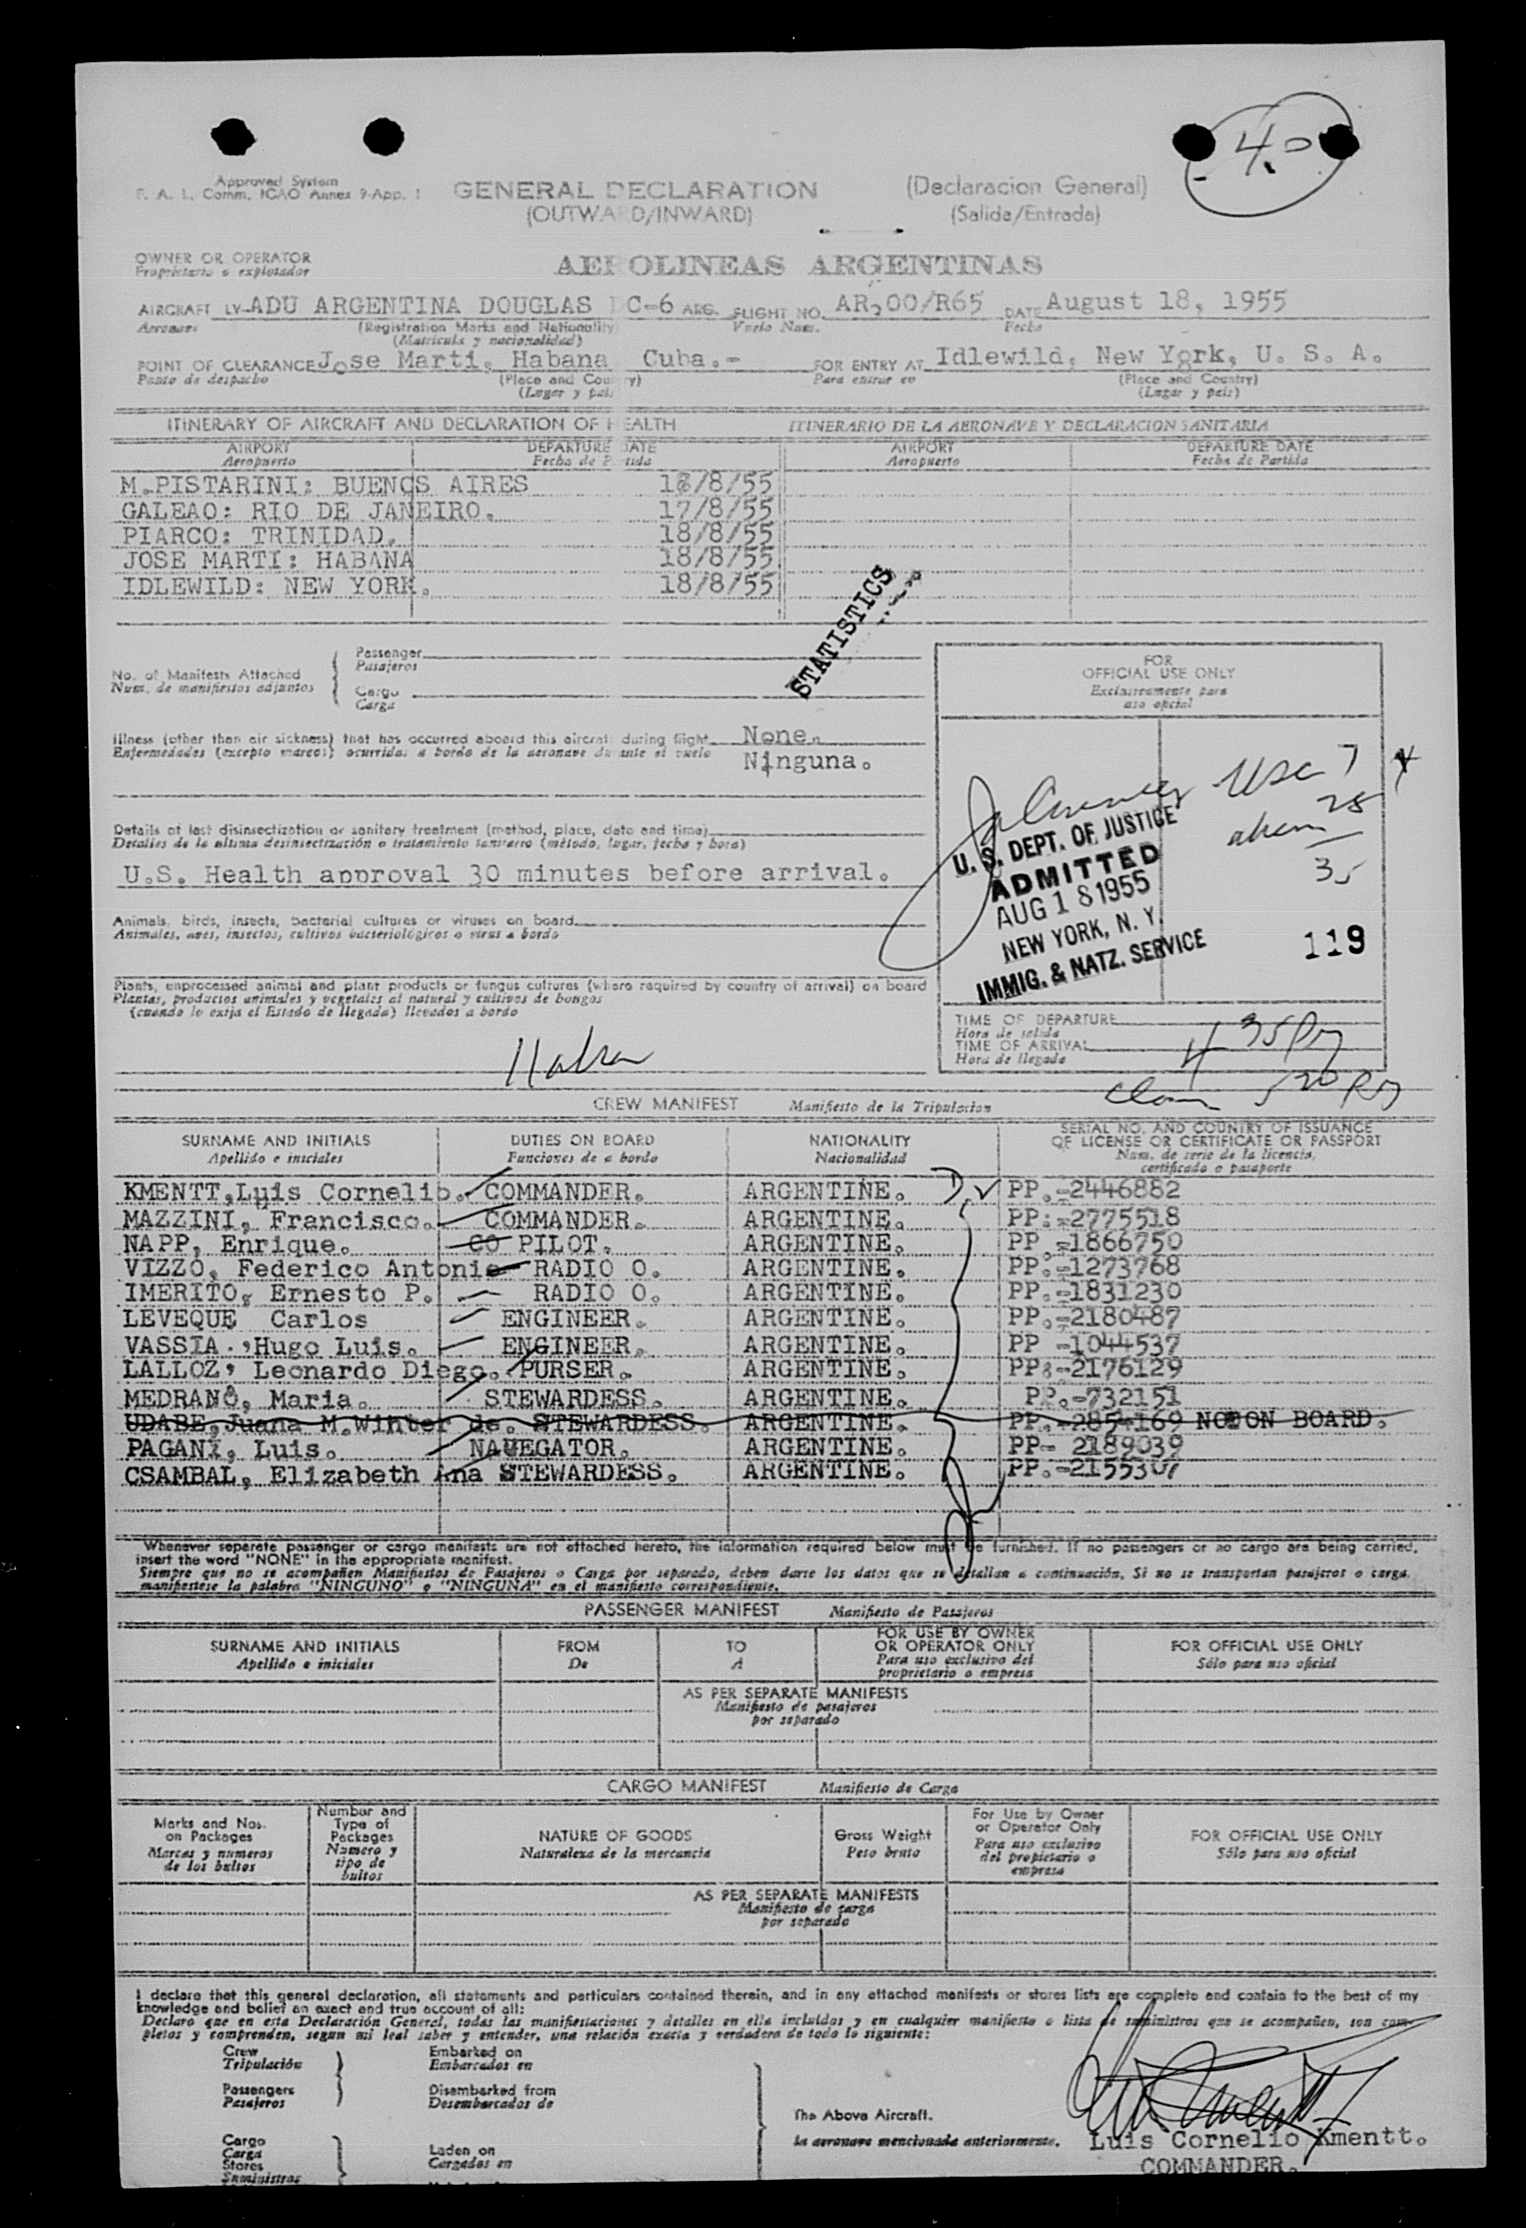 4.0
Approved System
F. A. L. Comm. ICAO Annex 9-App. 1
GENERAL DECLARATION (Declaracion General)
(OUTWARD/INWARD) (Salida/Entrada)
OWNER OR OPERATOR
Propietario o explotador
AEROLINEAS ARGENTINAS
AIRCRAFT LV-ADU ARGENTINA DOUGLAS DC-6 ARG. FLIGHT NO. AR 00/R65 DATE August 18, 1955
Aeronave (Registration Marks and Nationality) Vuelo Num. Fecha
(Matricula y nacionalidad)
POINT OF CLEARANCE Jose Marti, Habana Cuba.- FOR ENTRY AT Idlewild, New York, U. S. A.
Punto de despacho (Place and Country) Para entrar en (Place and Country)
(Lugar y pais) (Lugar y pais)
ITINERARY OF AIRCRAFT AND DECLARATION OF HEALTH ITINERARIO DE LA AERONAVE Y DECLARACION SANITARIA
AIRPORT DEPARTURE DATE AIRPORT DEPARTURE DATE
Aeropuerto Fecha de Partida Aeropuerto Fecha de Partida
M.PISTARINI: BUENOS AIRES /8/55
GALEAO: RIO DE JANEIRO. 17/8/55
PIARCO: TRINIDAD. 18/8/55
JOSE MARTI: HABANA 18/8/55
IDLEWILD: NEW YORK. 18/8/55
STATISTICS
No. of Manifests Attached
Num. de manifiestos adjuntos
Passenger
Pasajeros
Cargo
Carga
FOR
OFFICIAL USE ONLY
Exclusivamente para
uso oficial
Illness (other than air sickness) that has occurred aboard this aircraft during flight None.
Enfermedades (excepto mareos) ocurridas a bordo de la aeronave durante el vuelo Ninguna.
Details of last disinsectization or sanitary treatment (method, place, date and time)
Detalles de la ultima desinsectización o tratamiento sanitario (método, lugar, fecha y hora)
U.S. Health approval 30 minutes before arrival.
Animals, birds, insects, bacterial cultures or viruses on board
Animales, aves, insectos, cultivos bacteriológicos o virus a bordo
Plants, unprocessed animal and plant products or fungus cultures (where required by country of arrival) on board
Plantas, productos animales y vegetales al natural y cultivos de hongos
(cuando lo exija el Estado de llegada) llevados a bordo
USC 7
alien 28
35
U. S. DEPT. OF JUSTICE
ADMITTED
AUG 18 1955
NEW YORK, N. Y.
IMMIG. & NATZ. SERVICE
119
TIME OF DEPARTURE
Hora de salida
TIME OF ARRIVAL 4 35 PM
Hora de llegada
520 PM
CREW MANIFEST Manifiesto de la Tripulacion
SURNAME AND INITIALS DUTIES ON BOARD NATIONALITY SERIAL NO. AND COUNTRY OF ISSUANCE
Apellido e iniciales Funciones de a bordo Nacionalidad OF LICENSE OR CERTIFICATE OR PASSPORT
Num. de serie de la licencia,
certificado o pasaporte
KMENTT,Luis Cornelio. COMMANDER. ARGENTINE. PP.-2446882
MAZZINI, Francisco. COMMANDER. ARGENTINE. PP.-2775518
NAPP, Enrique. CO PILOT. ARGENTINE. PP.-1866750
VIZZO, Federico Antonio RADIO O. ARGENTINE. PP.-1273768
IMERITO, Ernesto P. RADIO O. ARGENTINE. PP.-1831230
LEVEQUE Carlos ENGINEER. ARGENTINE. PP.-2180487
VASSIA.,Hugo Luis. ENGINEER. ARGENTINE. PP -1044537
LALLOZ, Leonardo Diego. PURSER. ARGENTINE. PP.-2176129
MEDRANO, Maria. STEWARDESS. ARGENTINE. PP.-732151
UDABE,Juana M.Winter de. STEWARDESS. ARGENTINE. PP.-2854169 NOT ON BOARD.
PAGANI, Luis. NAVEGATOR. ARGENTINE. PP- 2189039
CSAMBAL, Elizabeth Ana STEWARDESS. ARGENTINE. PP.-2155307
Whenever separate passenger or cargo manifests are not attached hereto, the information required below must be furnished. If no passengers or no cargo are being carried,
insert the word "NONE" in the appropriate manifest.
Siempre que no se acompañen Manifiestos de Pasajeros o Carga por separado, deben darse los datos que se detallan a continuación. Si no se transportan pasajeros o carga,
manifiestese la palabra "NINGUNO" o "NINGUNA" en el manifiesto correspondiente.
PASSENGER MANIFEST Manifiesto de Pasajeros
SURNAME AND INITIALS FROM TO FOR USE BY OWNER OR OPERATOR ONLY FOR OFFICIAL USE ONLY
Apellido e iniciales De A Para uso exclusivo del propietario o empresa Sólo para uso oficial
AS PER SEPARATE MANIFESTS
Manifiesto de pasajeros
por separado
CARGO MANIFEST Manifiesto de Carga
Marks and Nos. on Packages Number and Type of Packages NATURE OF GOODS Gross Weight For Use by Owner or Operator Only FOR OFFICIAL USE ONLY
Marcas y numeros de los bultos Numero y tipo de bultos Naturaleza de la mercancia Peso bruto Para uso exclusivo del propietario o empresa Sólo para uso oficial
AS PER SEPARATE MANIFESTS
Manifiesto de carga
por separado
I declare that this general declaration, all statements and particulars contained therein, and in any attached manifests or stores lists are complete and contain to the best of my
knowledge and belief an exact and true account of all:
Declaro que en esta Declaración General, todas las manifestaciones y detalles en ella incluidos y en cualquier manifiesto o lista de suministros que se acompañen, son com-
pletos y comprenden, segun mi leal saber y entender, una relación exacta y verdadera de todo lo siguiente:
Crew Embarked on
Tripulación Embarcados en
Passengers Disembarked from
Pasajeros Desembarcados de
The Above Aircraft.
La aeronave mencionada anteriormente.
Cargo
Carga Laden on
Stores Cargados en
Suministros
Luis Cornelio Kmentt.
COMMANDER.